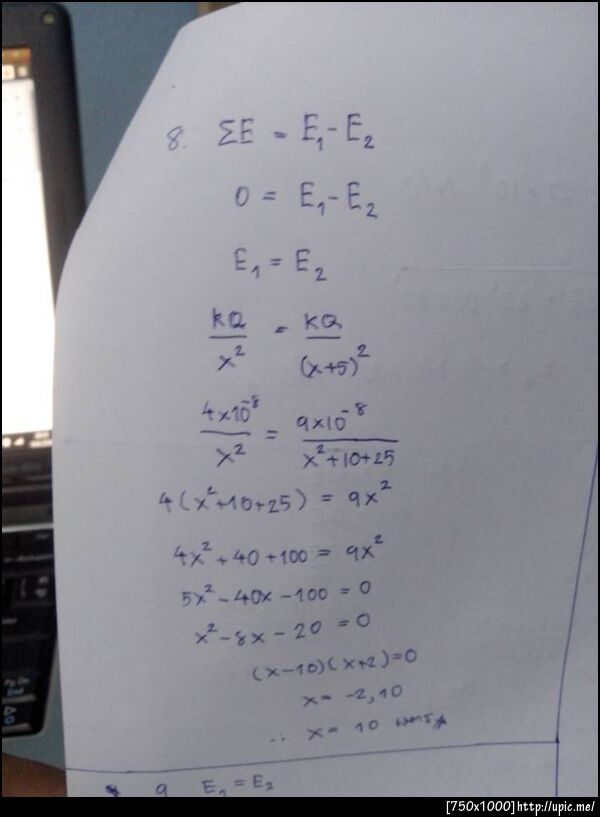 8. ΣE = E₁ - E₂
0 = E₁ - E₂
E₁ = E₂
kQ/x² = kQ/(x+5)²
4×10⁻⁸/x² = 9×10⁻⁸/x²+10+25
4(x²+10+25) = 9x²
4x²+40+100 = 9x²
5x²-40x-100 = 0
x²-8x-20 = 0
(x-10)(x+2)=0
x = -2,10
∴ x = 10
9 E₁ = E₂
[750x1000]http://upic.me/